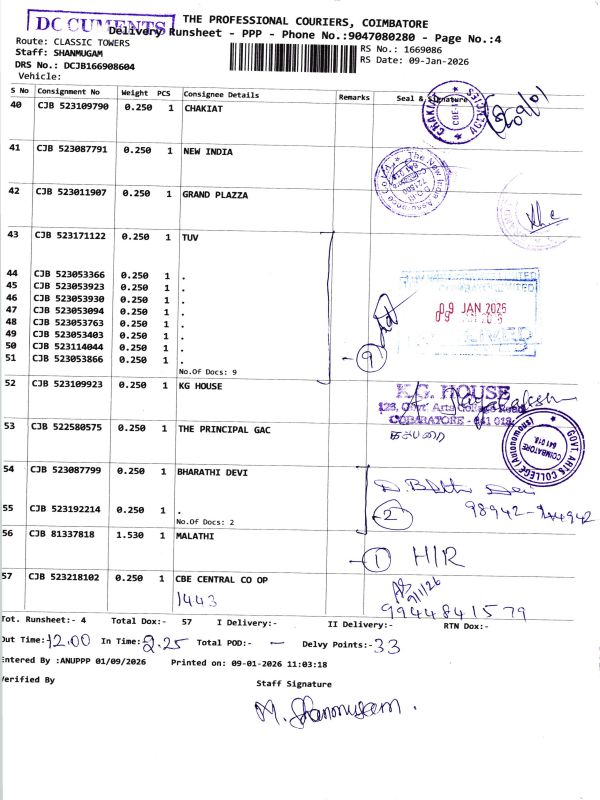 DOCUMENTS
THE PROFESSIONAL COURIERS, COIMBATORE
Delivery Runsheet - PPP - Phone No.:9047080280 - Page No.:4
Route: CLASSIC TOWERS
RS No.: 1669086
Staff: SHANMUGAM
RS Date: 09-Jan-2026
DRS No.: DCJB166908604
Vehicle:
S No Consignment No Weight PCS Consignee Details Remarks Seal & Signature
40 CJB 523109790 0.250 1 CHAKIAT
CHAKIAT AGENCIES
41 CJB 523087791 0.250 1 NEW INDIA
The New India Assurance Co.
42 CJB 523011907 0.250 1 GRAND PLAZZA
43 CJB 523171122 0.250 1 TUV
44 CJB 523053366 0.250 1 .
45 CJB 523053923 0.250 1 .
46 CJB 523053930 0.250 1 .
47 CJB 523053094 0.250 1 .
48 CJB 523053763 0.250 1 .
49 CJB 523053403 0.250 1 .
50 CJB 523114044 0.250 1 .
51 CJB 523053866 0.250 1 .
No.Of Docs: 9
9
09 JAN 2026
52 CJB 523109923 0.250 1 KG HOUSE
K.G. HOUSE
123, Govt. Arts College Road
COIMBATORE - 641 018
53 CJB 522580575 1 0.250 THE PRINCIPAL GAC
GOVT. ARTS COLLEGE (Autonomous)
COIMBATORE
641 018
54 CJB 523087799 0.250 1 BHARATHI DEVI
55 CJB 523192214 0.250 1 .
No.Of Docs: 2
2
98942-44942
56 CJB 81337818 1.530 1 MALATHI
1 H/R
57 CJB 523218102 0.250 1 CBE CENTRAL CO OP
1443
9/1/26
9944841579
Tot. Runsheet:- 4 Total Dox:- 57 I Delivery:- II Delivery:- RTN Dox:-
Out Time: 12.00 In Time: 2.25 Total POD:- - Delvy Points:- 33
Entered By :ANUPPP 01/09/2026 Printed on: 09-01-2026 11:03:18
Verified By
Staff Signature
M. Shanmugam.